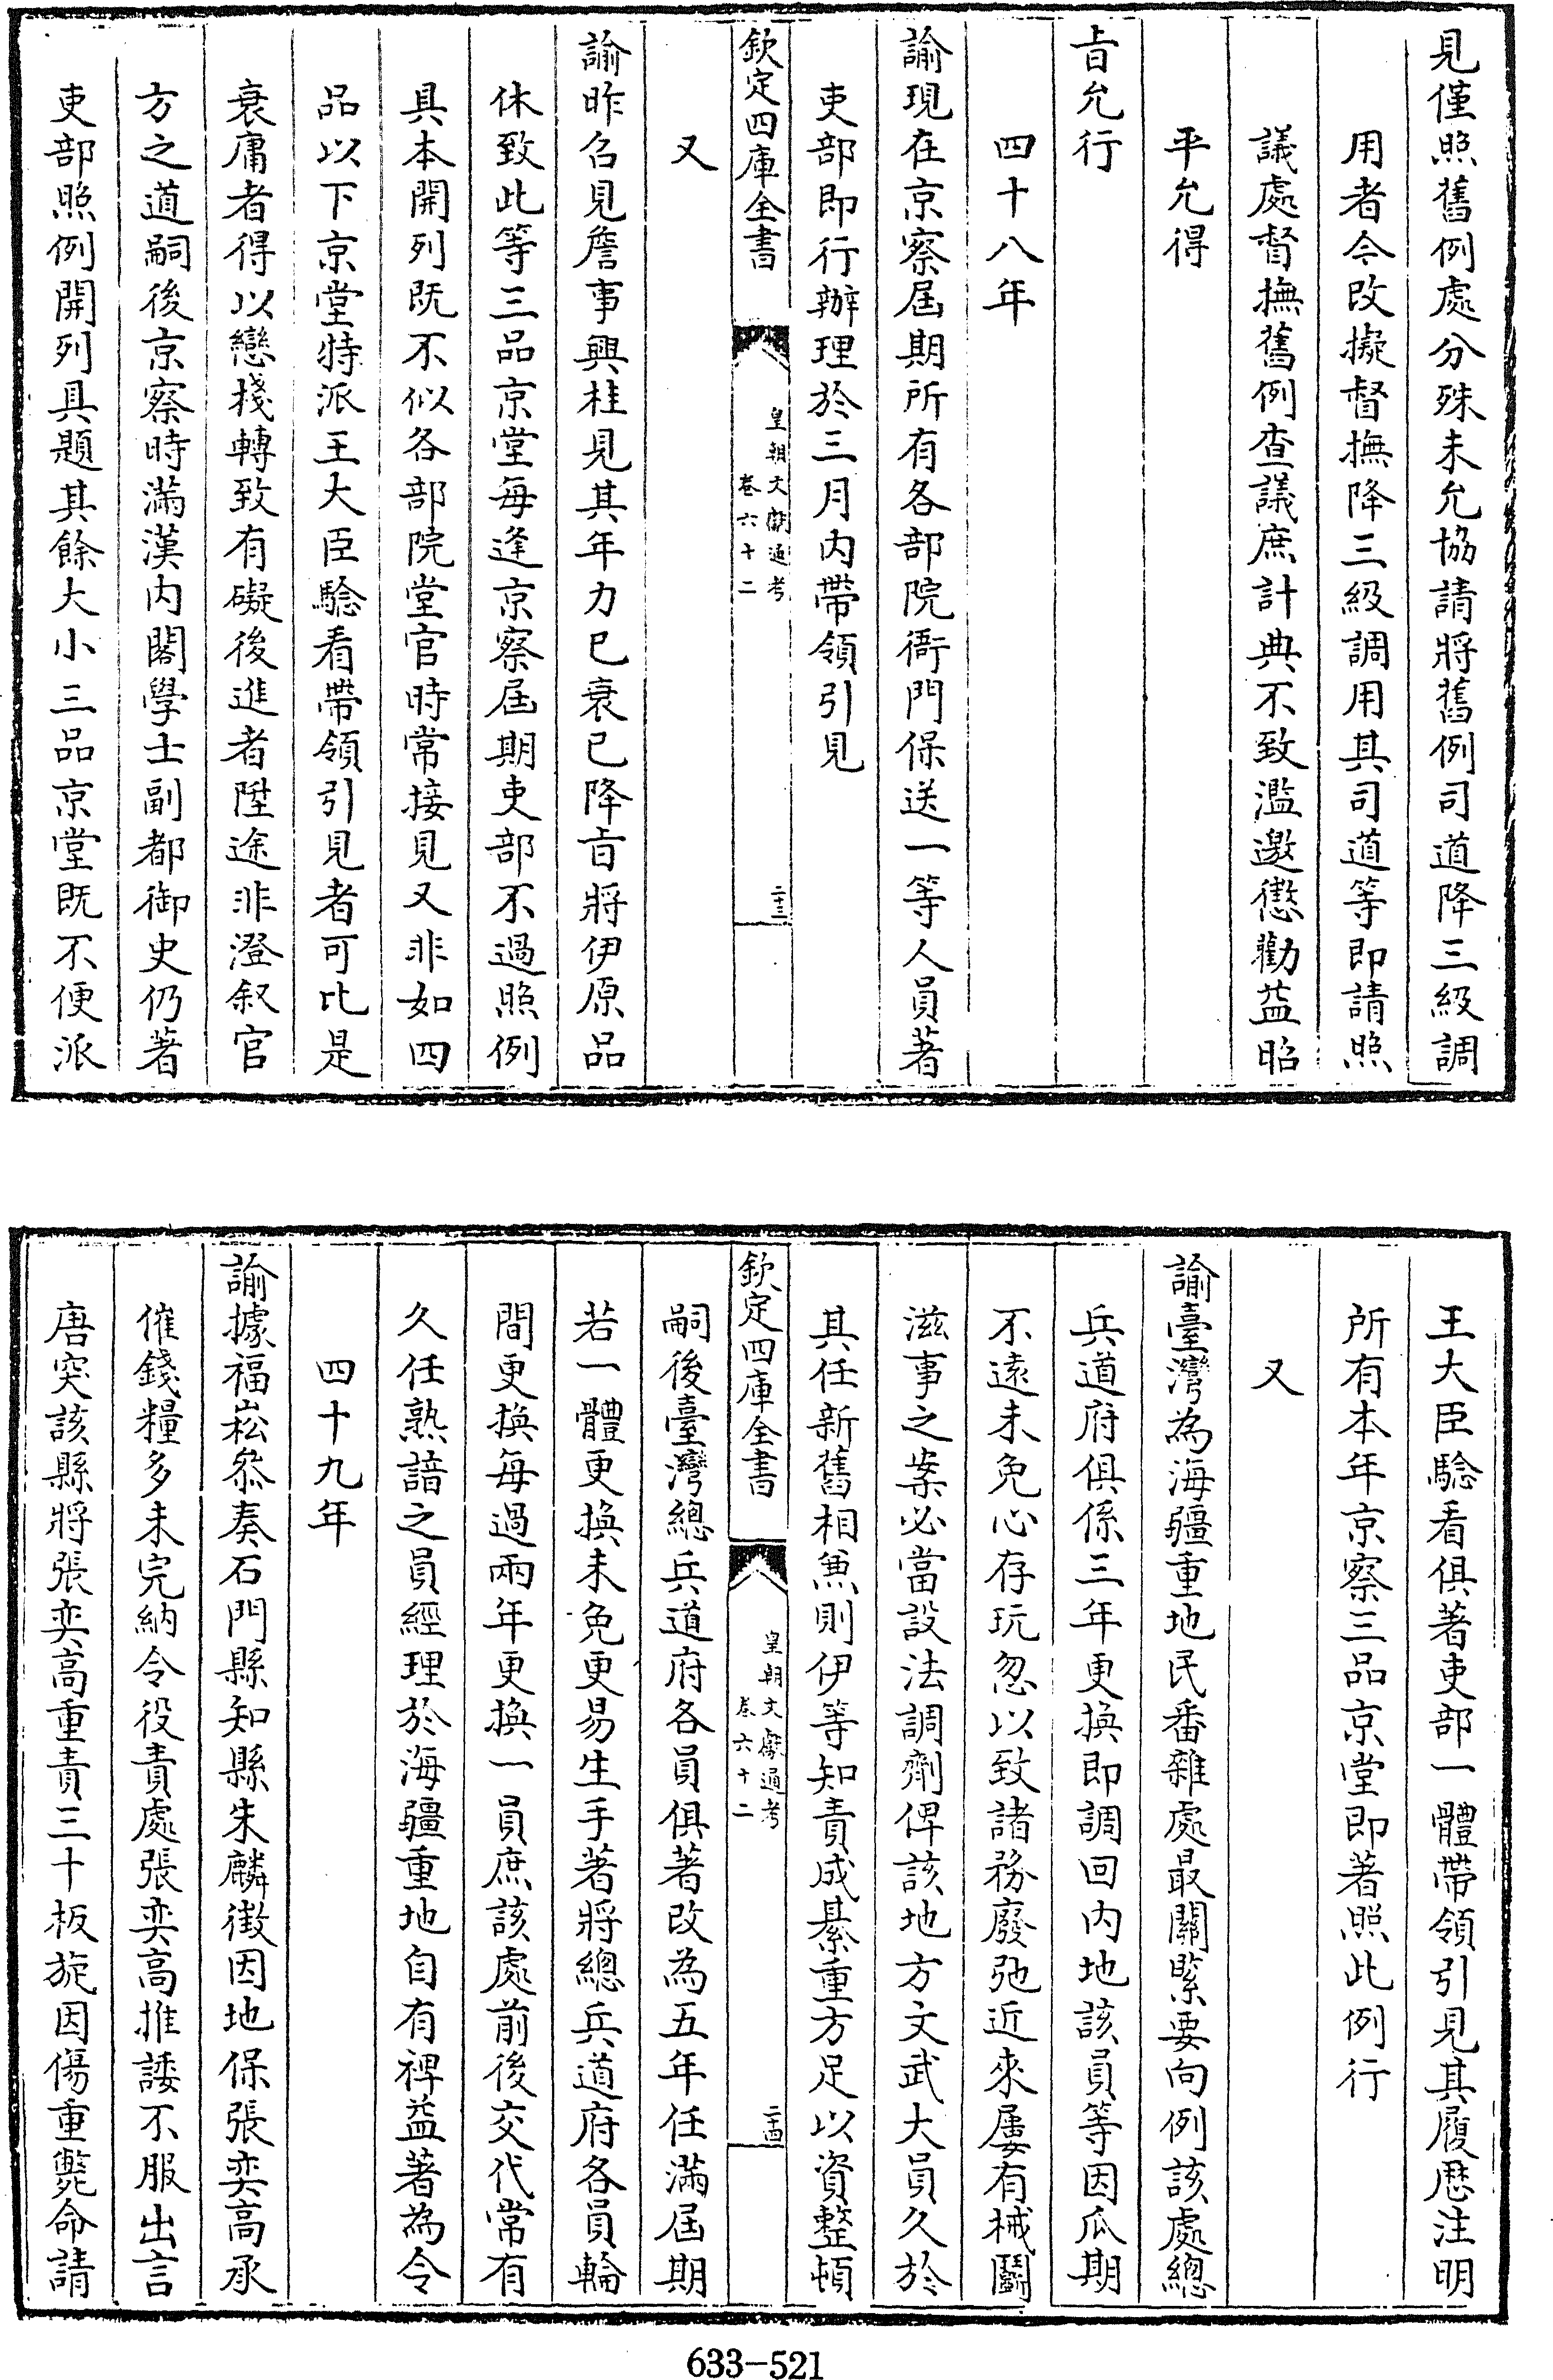 見僅照舊例處分殊未允協請將舊例司道降三級調
用者今改擬督撫降三級調用其司道等即請照
議處督撫舊例查議庶計典不致濫邀懲勸益昭
平允得
旨允行
四十八年
諭現在京察屆期所有各部院衙門保送一等人員著
吏部即行辦理於三月內帶領引見
欽定四庫全書
皇朝文獻通考
卷六十二
二十三
又
諭昨召見詹事興桂見其年力已衰已降旨將伊原品
休致此等三品京堂每逢京察屆期吏部不過照例
具本開列既不似各部院堂官時常接見又非如四
品以下京堂特派王大臣驗看帶領引見者可比是
衰庸者得以戀棧轉致有礙後進者陞途非澄叙官
方之道嗣後京察時滿漢內閣學士副都御史仍著
吏部照例開列具題其餘大小三品京堂既不便派
王大臣驗看俱著吏部一體帶領引見其履歷注明
所有本年京察三品京堂即著照此例行
又
諭臺灣為海疆重地民番雜處最關緊要向例該處總
兵道府俱係三年更換即調回內地該員等因瓜期
不遠未免心存玩忽以致諸務廢弛近來屢有械鬭
滋事之案必當設法調劑俾該地方文武大員久於
其任新舊相兼則伊等知責成綦重方足以資整頓
欽定四庫全書
皇朝文獻通考
卷六十二
二十四
嗣後臺灣總兵道府各員俱著改為五年任滿屆期
若一體更換未免更易生手著將總兵道府各員輪
間更換每過兩年更換一員庶該處前後交代常有
久任熟諳之員經理於海疆重地自有裨益著為令
四十九年
諭據福崧叅奏石門縣知縣朱麟徵因地保張奕高承
催錢糧多未完納令役責處張奕高推諉不服出言
唐突該縣將張奕高重責三十板旋因傷重斃命請
633-521